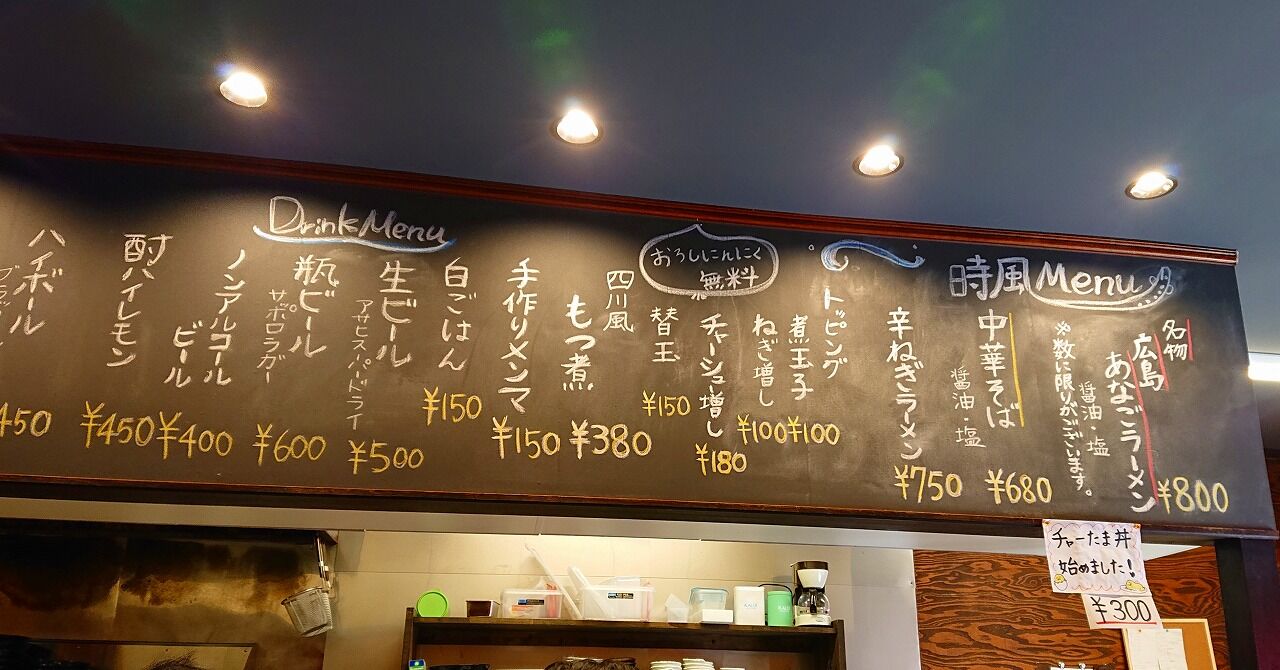 時風Menu
名物
広島
あなごラーメン
醤油・塩
¥800
※数に限りがございます。
中華そば
醤油・塩
¥680
辛ねぎラーメン
¥750
トッピング
煮玉子
¥100
ねぎ増し
¥100
チャーシュー増し
¥180
替玉
¥150
おろしにんにく
無料
四川風
もつ煮
¥380
手作りメンマ
¥150
白ごはん
¥150
Drink Menu
生ビール
アサヒスーパードライ
¥500
瓶ビール
サッポロラガー
¥600
ノンアルコール
ビール
¥400
酎ハイレモン
¥450
ハイボール
450
チャーたま丼
始めました!
¥300